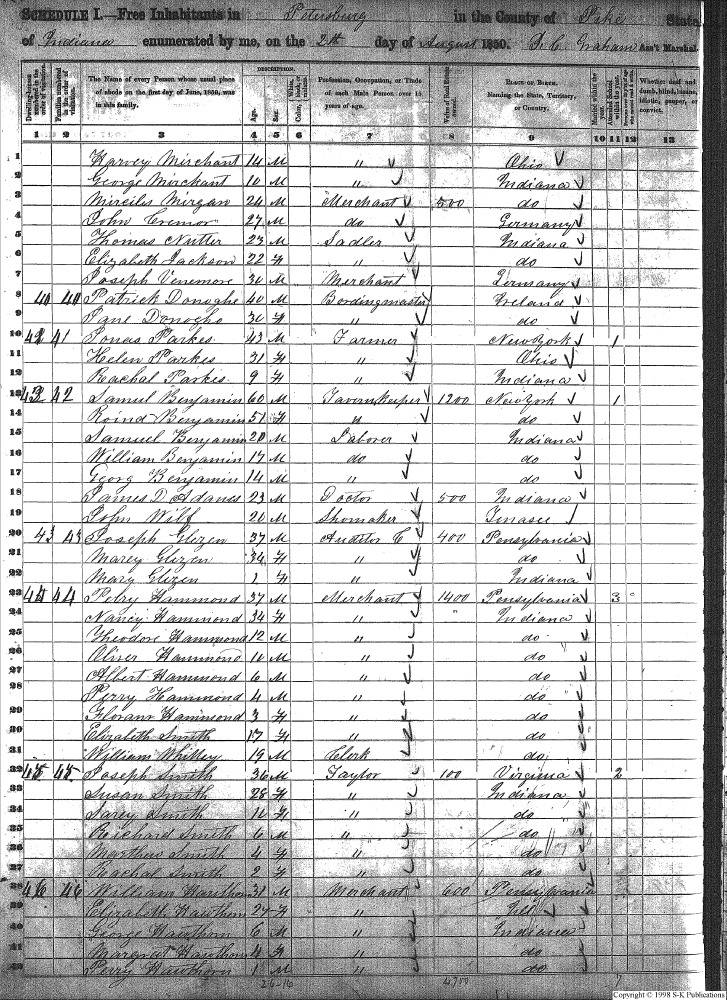 SCHEDULE I.—Free Inhabitants in Petersburg in the County of Pike State
of Indiana enumerated by me, on the 2th day of August 1850. Graham Ass't Marshal.
DESCRIPTION.
Dwelling-houses numbered in the order of visitation.
Families numbered in the order of visitation.
The Name of every Person whose usual place of abode on the first day of June, 1850, was in this family.
Age.
Sex.
Profession, Occupation, or Trade of each Male Person over 15 years of age.
Value of Real Estate owned.
PLACE OF BIRTH. Naming the State, Territory, or Country.
Married within the year.
Attended School within the year.
Whether deaf and dumb, blind, insane, idiotic, pauper, or convict.
1 2 3 4 5 6 7 8 9 10 11 12 13
1 Harvey Mirchant 14 M " Ohio
2 George Mirchant 10 M " Indiana
3 Mirgan 24 M Merchant 500 do
4 John Cremor 27 M do Germany
5 Thomas Nutter 23 M Sadler Indiana
6 Elizabeth Jackson 22 F " do
7 Joseph Venemore 30 M Merchant Germany
8 40 40 Patrick Donoghe 40 M Bordingmaster Ireland
9 Jane Donogho 30 F " do
10 42 41 Jonas Parkes 43 M Farmer New York 1
11 Helen Parkes 31 F " Ohio
12 Rachal Parkes 9 F " Indiana
13 43 42 Samul Benjamin 60 M Tavern Keeper 1200 New York 1
14 Benjamin 51 F " do
15 Samuel Benjamin 20 M Laborer Indiana
16 William Benjamin 17 M do do
17 Georg Benjamin 14 M " do
18 James D Adames 23 M Doctor 500 Indiana
19 John Wilf 20 M Shomaker Tenasee
20 43 43 Joseph Glezen 37 M Auditor C 400 Pensylvania
21 Marey Glezen 34 F " do
22 Mary Glezen 1 F " Indiana
23 44 44 Petry Hammond 37 M Merchant 1400 Pensylvania 3
24 Nancy Hammond 34 F " Indiana
25 Theodore Hammond 12 M " do
26 Oliver Hammond 10 M " do
27 Albert Hammond 6 M " do
28 Perry Hammond 4 M " do
29 Hammond 3 F " do
30 Elizabeth Smith 17 F " do
31 William Whitley 19 M Clerk do
32 45 45 Joseph Smith 36 M Taylor 100 Virginia 2
33 Susan Smith 28 F " Indiana
34 Sarey Smith 10 F " do
35 Richard Smith 6 M " do
36 Smith 4 F " do
37 Rachal Smith 2 F " do
38 46 46 William Hawthorn 31 M Merchant 600 Pensylvania
39 Elizabeth Hawthorn 27 F "
40 George Hawthorn 6 M " Indiana
41 Margrat Hawthorn 4 F " do
42 Perry Hawthorn 1 M " do
26-16 4700 7
Copyright © 1998 S-K Publications